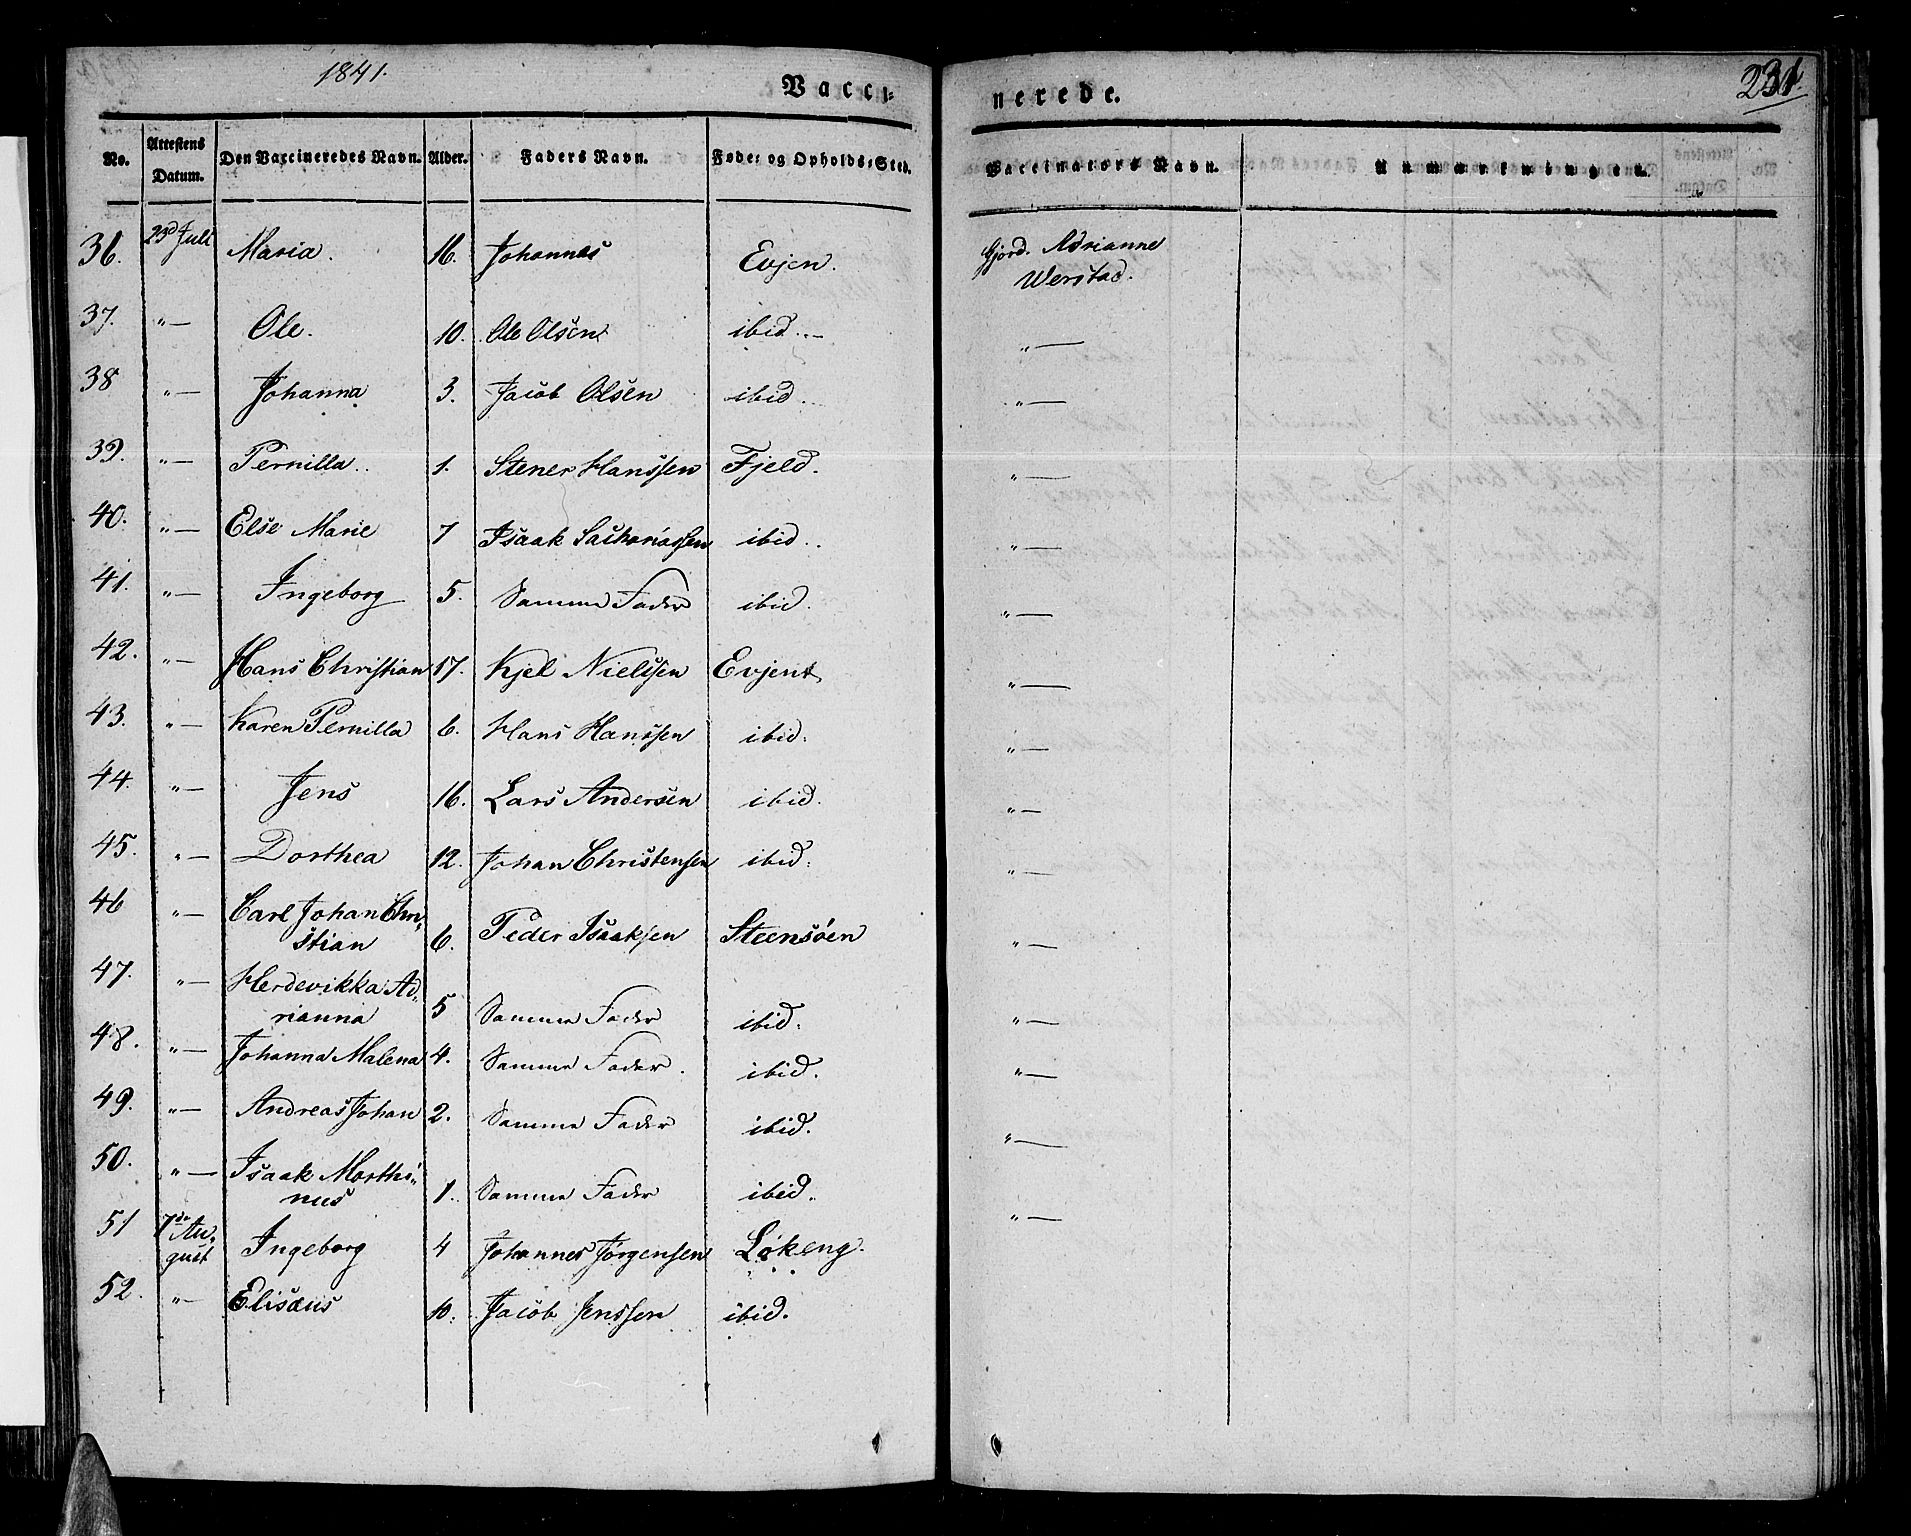 1841.
Vacci-
nerede.
231.
No. Attestens Datum. Den Vaccineredes Navn. Alder. Faders Navn. Føde- og Opholds-Sted. Vaccinators Navn. Anmærkninger.
36. 23d Juli Maria. 16. Johannes Evjen. Gjord. Adrianne
Werstad.
37. " — Ole. 10. Ole Olsen ibid. " —
38 " — Johanna 3. Jacob Olsen ibid. " —
39. " — Pernilla. 1. Stener Hanssen Fjeld. " —
40. " — Else Marie 7 Isaak Sachariassen ibid. " —
41. " — Ingeborg 5. Samme Fader ibid. " —
42. " — Hans Christian 17. Kjel Nielssen Evjent " —
43. " — Karen Pernilla 6. Hans Hanssen ibid. " —
44. " — Jens 16. Lars Andersen ibid. " —
45. " — Dorthea 12. Johan Christensen ibid. " —
46 " — Carl Johan Chri-
stian 6. Peder Isaaksen Steensöen " —
47. " — Herdevikka Ad-
rianna 5 Samme Fader ibid. " —
48. " — Johanna Malena 4. Samme Fader. ibid. " —
49. " — Andreas Johan 2. Samme Fader ibid. " —
50. " — Isaak Marthi-
nus 1. Samme Fader ibid. " —
51 7de Au-
gust Ingeborg 4 Johannes Jørgensen Løkeng.
52. " — Elisæus 10. Jacob Jenssen ibid.